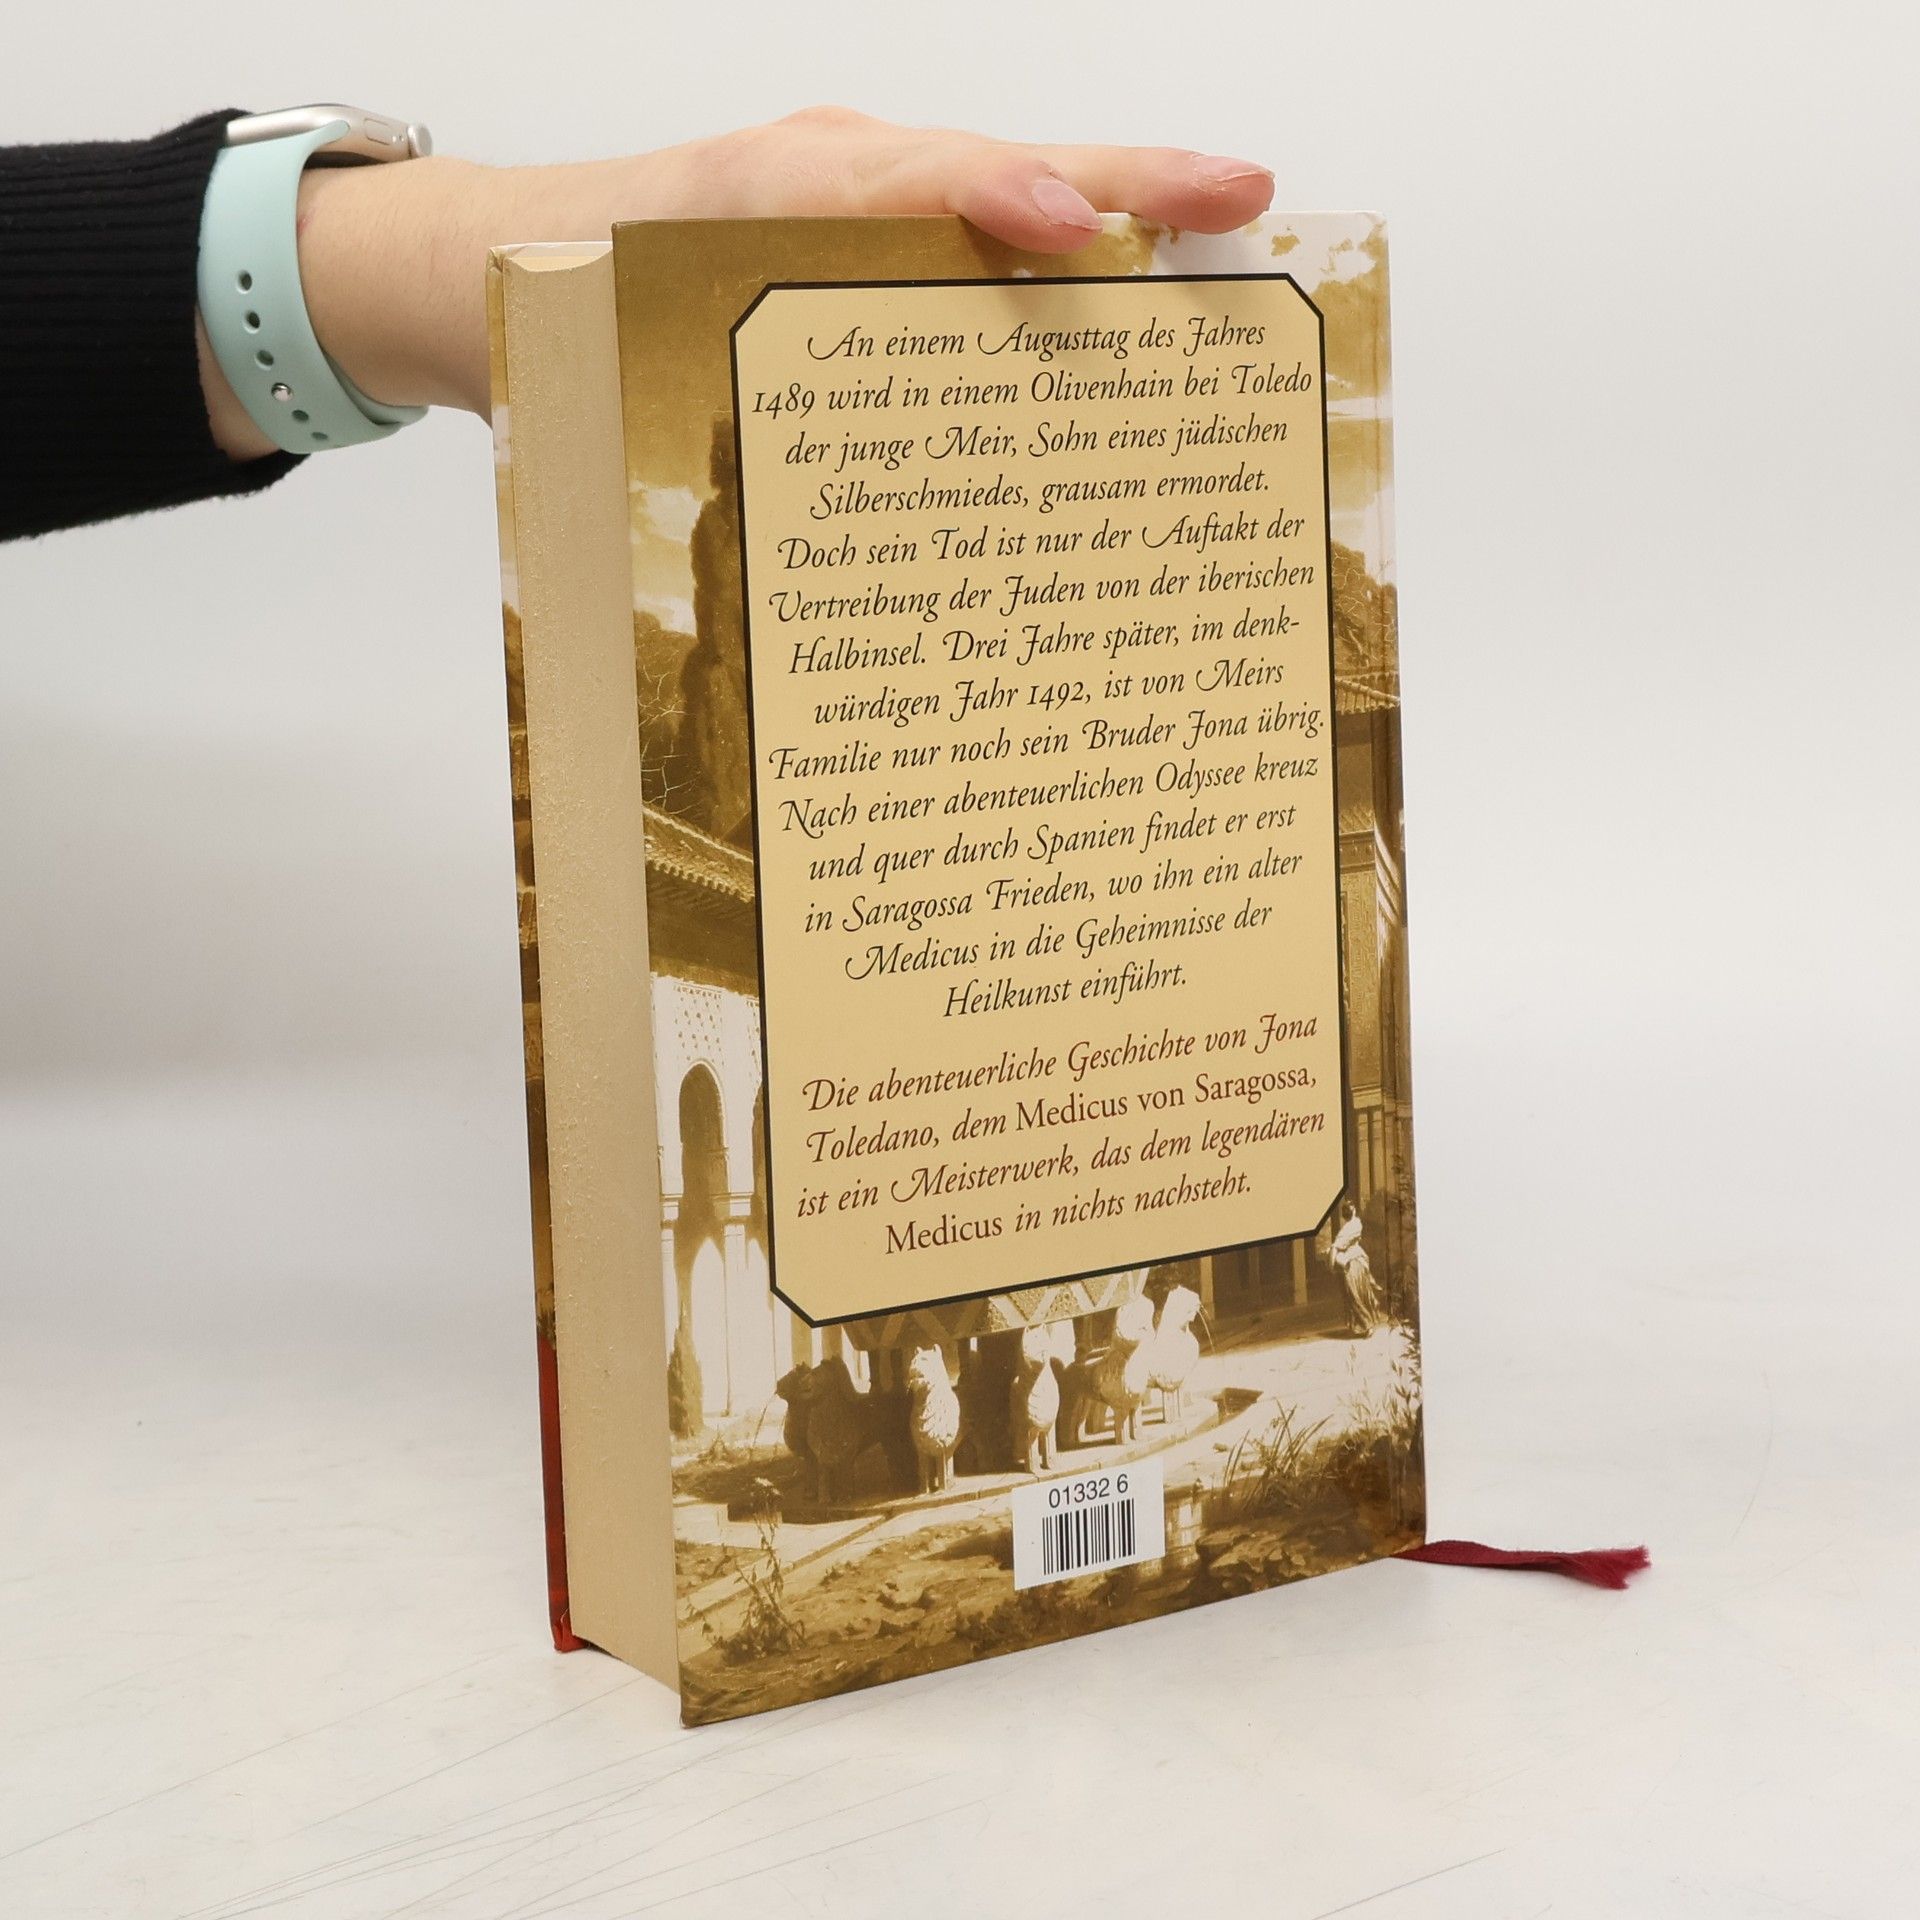 An einem Augusttag des Jahres
1489 wird in einem Olivenhain bei Toledo
der junge Meir, Sohn eines jüdischen
Silberschmiedes, grausam ermordet.
Doch sein Tod ist nur der Auftakt der
Vertreibung der Juden von der iberischen
Halbinsel. Drei Jahre später, im denk-
würdigen Jahr 1492, ist von Meirs
Familie nur noch sein Bruder Jona übrig.
Nach einer abenteuerlichen Odyssee kreuz
und quer durch Spanien findet er erst
in Saragossa Frieden, wo ihn ein alter
Medicus in die Geheimnisse der
Heilkunst einführt.
Die abenteuerliche Geschichte von Jona
Toledano, dem Medicus von Saragossa,
ist ein Meisterwerk, das dem legendären
Medicus in nichts nachsteht.
01332 6